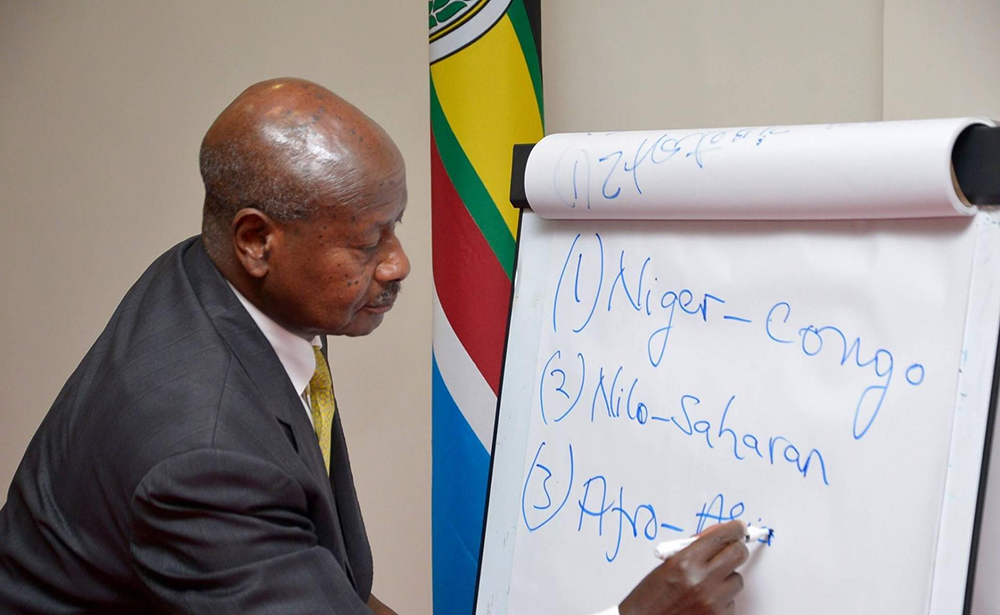 (1) Niger-Congo
(2) Nilo-Saharan
(3) Afro-